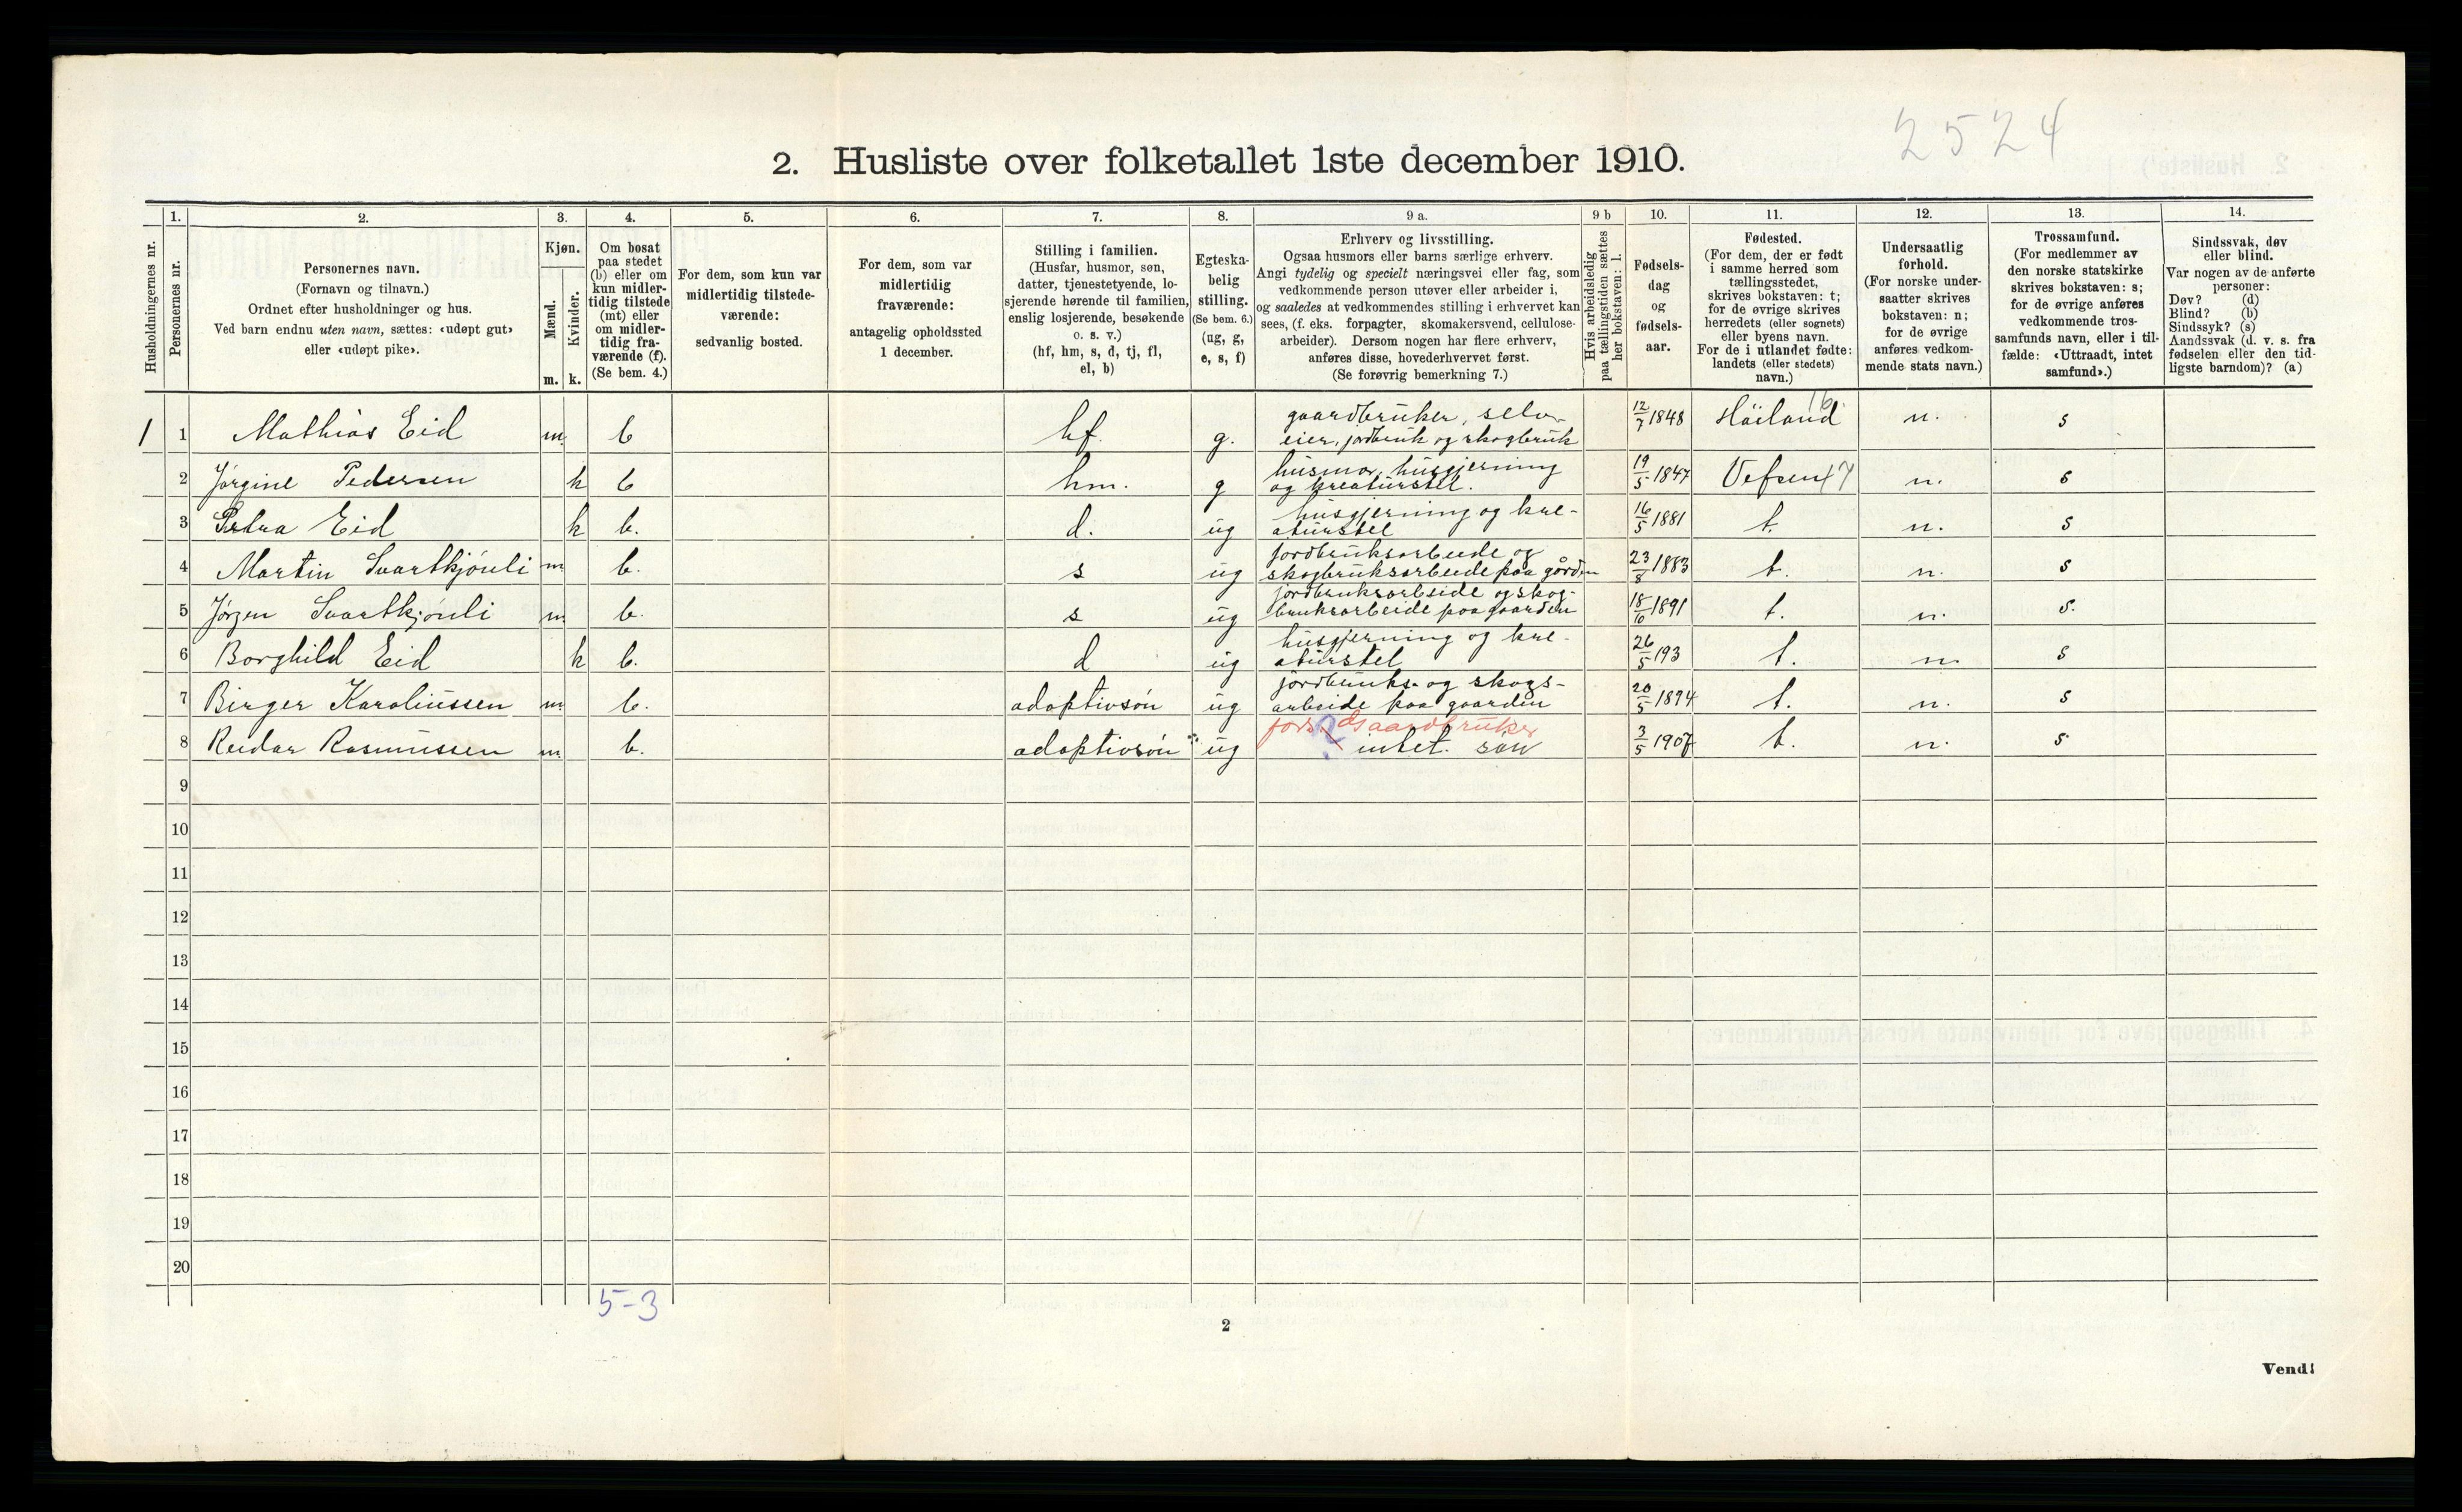 2524
2. Husliste over folketallet 1ste december 1910.
Husholdningernes nr.
1. Personernes nr.
2. Personernes navn.
(Fornavn og tilnavn.)
Ordnet efter husholdninger og hus.
Ved barn endnu uten navn, sættes: «udøpt gut»
eller «udøpt pike».
3. Kjøn.
Mænd. Kvinder.
m. k.
4. Om bosat
paa stedet
(b) eller om
kun midler-
tidig tilstede
(mt) eller
om midler-
tidig fra-
værende (f).
(Se bem. 4.)
5. For dem, som kun var
midlertidig tilstede-
værende:
sedvanlig bosted.
6. For dem, som var
midlertidig
fraværende:
antagelig opholdssted
1 december.
7. Stilling i familien.
(Husfar, husmor, søn,
datter, tjenestetyende, lo-
sjerende hørende til familien,
enslig losjerende, besøkende
o. s. v.)
(hf, hm, s, d, tj, fl,
el, b)
8. Egteska-
belig
stilling.
(Se bem. 6.)
(ug, g,
e, s, f)
9 a. Erhverv og livsstilling.
Ogsaa husmors eller barns særlige erhverv.
Angi tydelig og specielt næringsvei eller fag, som
vedkommende person utøver eller arbeider i,
og saaledes at vedkommendes stilling i erhvervet kan
sees, (f. eks. forpagter, skomakersvend, cellulose-
arbeider). Dersom nogen har flere erhverv,
anføres disse, hovederhvervet først.
(Se forøvrig bemerkning 7.)
9 b Hvis arbeidsledig
paa tællingstiden sættes
her bokstaven: l.
10. Fødsels-
dag
og
fødsels-
aar.
11. Fødested.
(For dem, der er født
i samme herred som
tællingsstedet,
skrives bokstaven: t;
for de øvrige skrives
herredets (eller sognets)
eller byens navn.
For de i utlandet fødte:
landets (eller stedets)
navn.)
12. Undersaatlig
forhold.
(For norske under-
saatter skrives
bokstaven: n;
for de øvrige
anføres vedkom-
mende stats navn.)
13. Trossamfund.
(For medlemmer av
den norske statskirke
skrives bokstaven: s;
for de øvrige anføres
vedkommende tros-
samfunds navn, eller i til-
fælde: «Uttraadt, intet
samfund».)
14. Sindssvak, døv
eller blind.
Var nogen av de anførte
personer:
Døv? (d)
Blind? (b)
Sindssyk? (s)
Aandssvak (d. v. s. fra
fødselen eller den tid-
ligste barndom)? (a)
1 1 Mathias Eid m b hf. g. gaardbruker, selv-
eier, jordbruk og skogbruk 12/7 1848 Höiland 16 n. s
2 Jørgine Pedersen k b hm. g husmor, husgjerning
og kreaturstel. 19/5 1847 Vefsen 17 n. s
3 Petra Eid k b. d. ug husgjerning og kre-
aturstel 16/5 1881 t. n. s
4 Martin Svartkjónli m b. s ug jordbruksarbeide og
skogbruksarbeide paa gården 23/8 1883 t. n. s
5 Jørgen Svartkjónli m b. s ug jordbruksarbeide og skog-
bruksarbeide paa gaarden 18/10 1891 t. n. s.
6 Borghild Eid k b. d ug husgjerning og kre-
aturstel 26/5 193 t. n. s
7 Birger Karoliussen m b. adoptivsón ug jordbruks- og skogs-
arbeide paa gaarden 20/5 1894 t. n. s
8 Reidar Rasmussen m b. adoptivsón ug fors. Gaardbruker
intet. søn 3/5 1907 t. n. s
9
10
11
12
13
14
15
16
17
18
19
20
5-3
2
Vend!